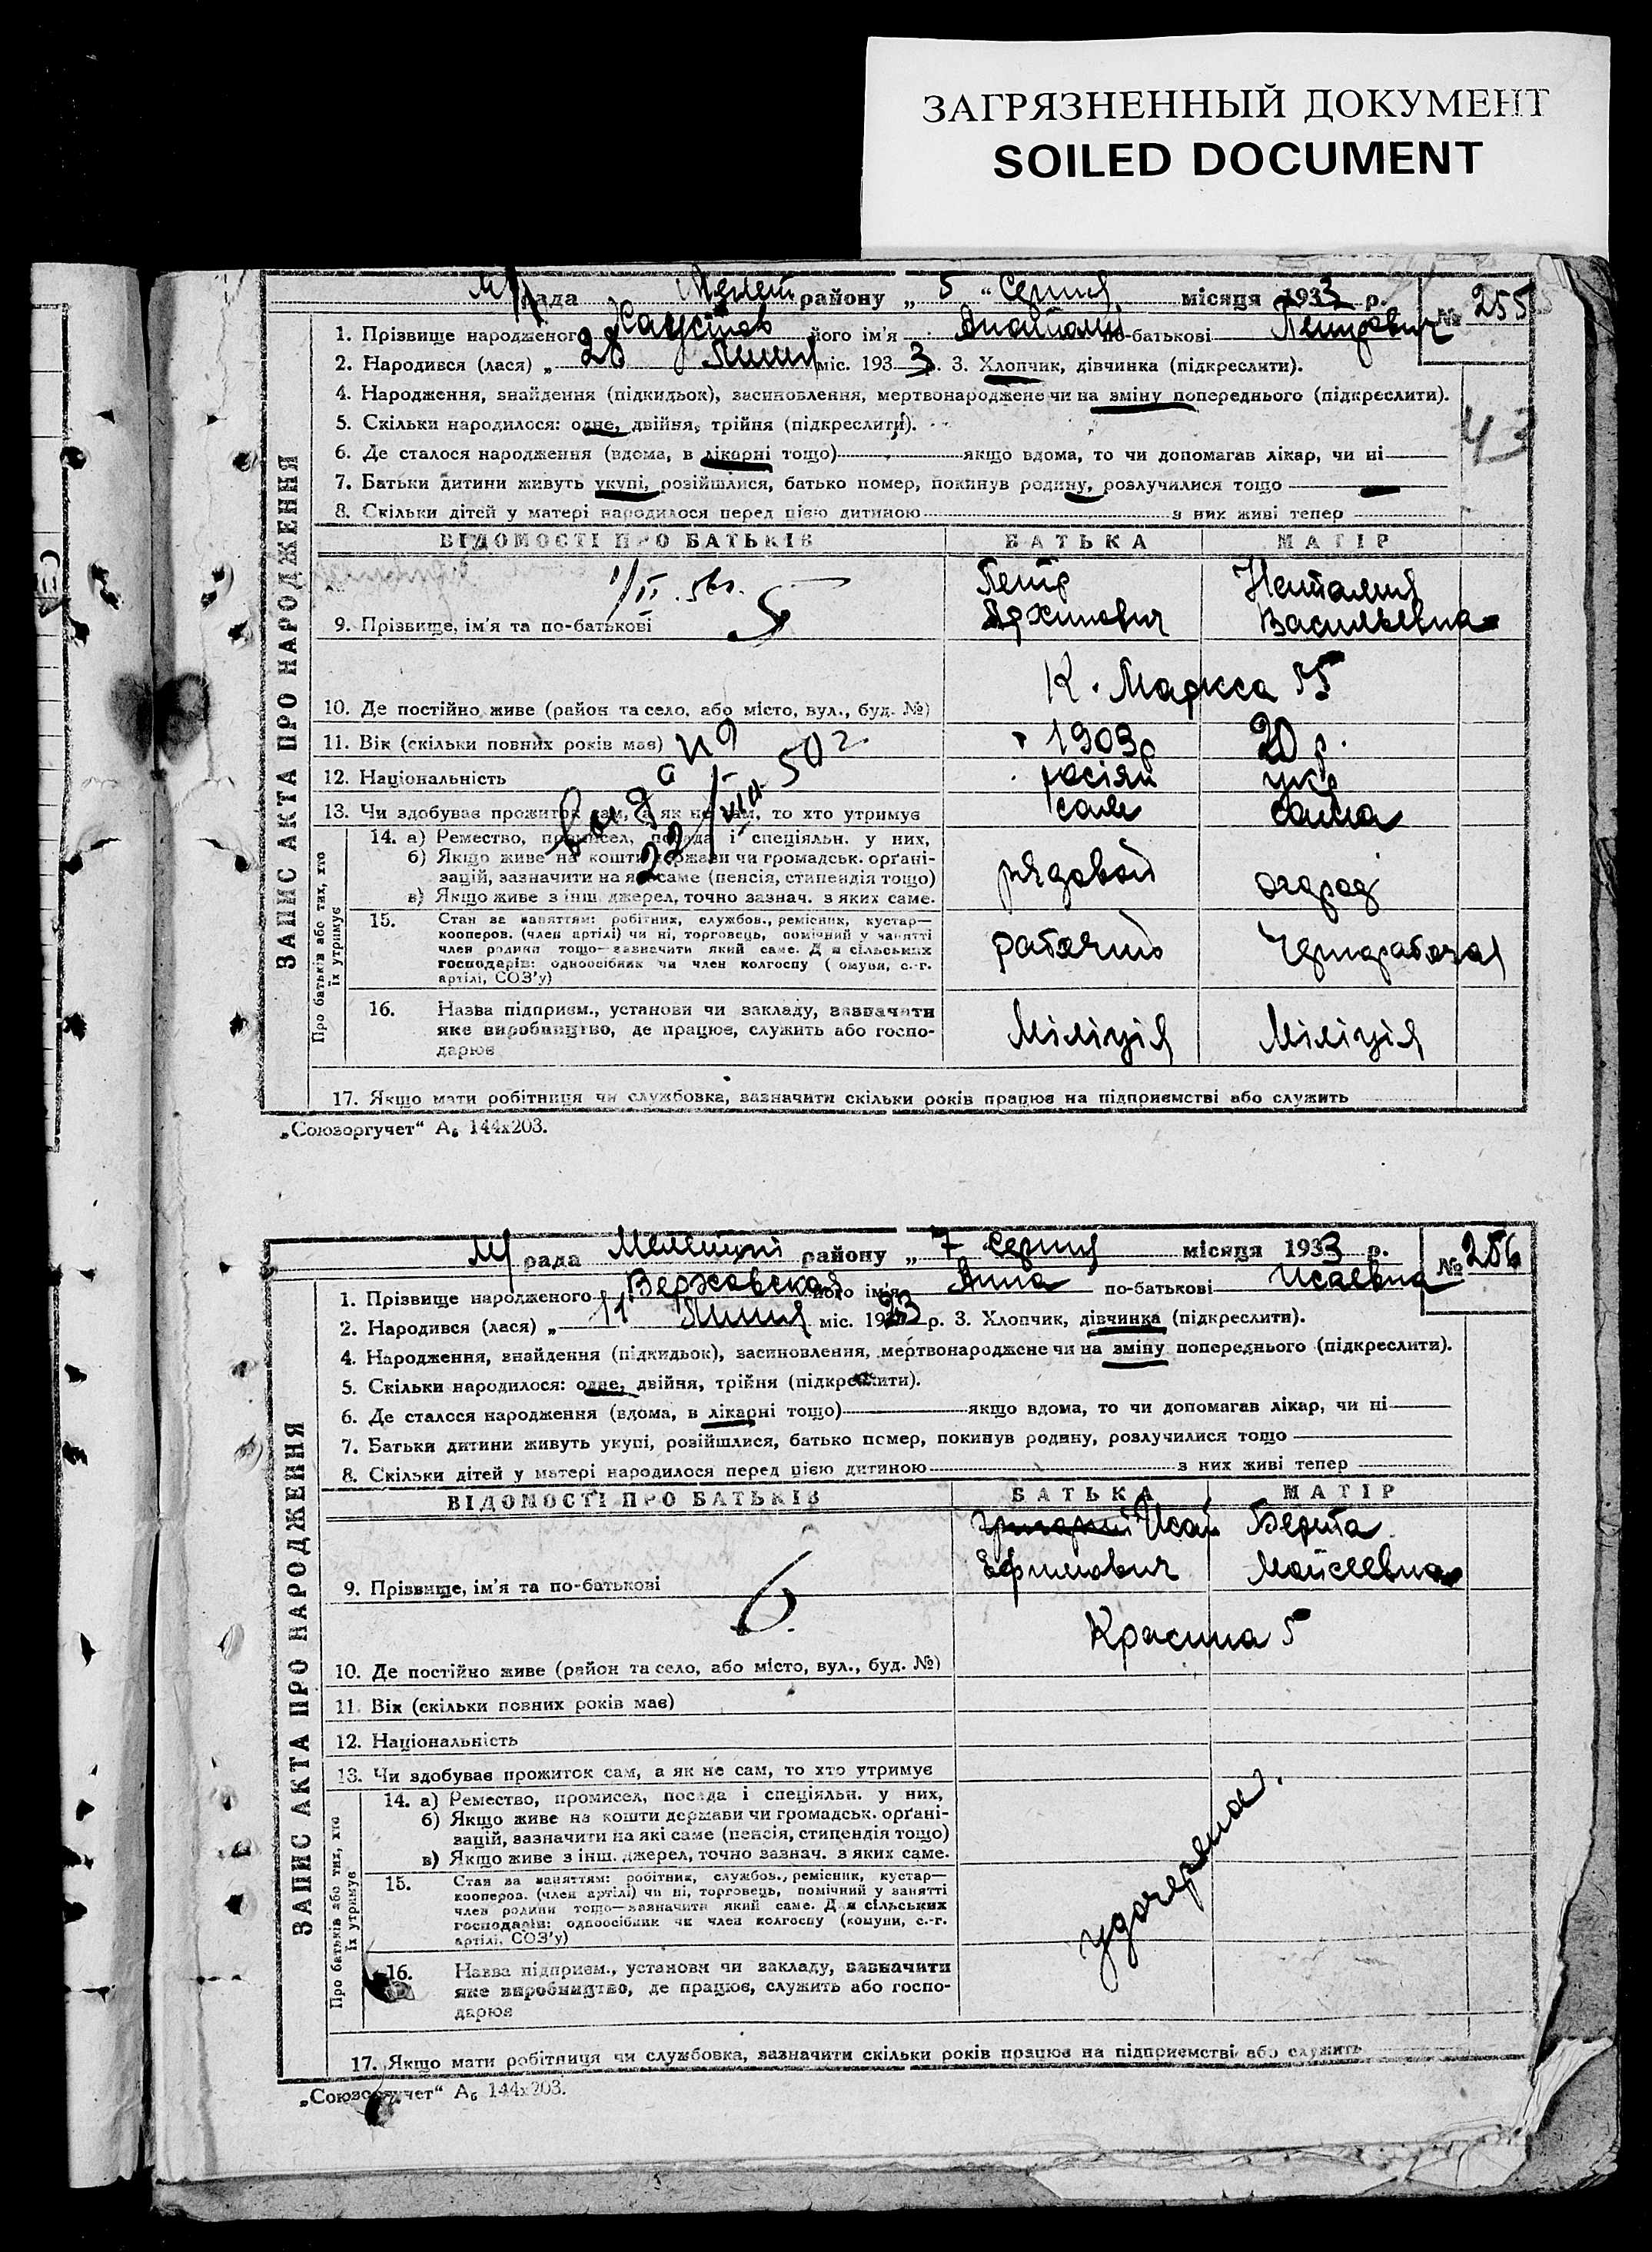 ЗАГРЯЗНЕННЫЙ ДОКУМЕНТ
SOILED DOCUMENT
рада району „ 5 “ Серпня місяця 1933 р. № 255
1. Прізвище народженого його ім'я Анатолий по-батькові Петрович
2. Народився (лася) „ 28 міс. 1933 р. 3. Хлопчик, дівчинка (підкреслити).
4. Народження, знайдення (підкидьок), засиновлення, мертвонароджене чи на зміну попереднього (підкреслити).
43
5. Скільки народилося: одне, двійня, трійня (підкреслити).
6. Де сталося народження (вдома, в лікарні тощо) якщо вдома, то чи допомагав лікар, чи ні
7. Батьки дитини живуть укупі, розійшлися, батько помер, покинув родину, розлучилися тощо
8. Скільки дітей у матері народилося перед цією дитиною з них живі тепер
ВІДОМОСТІ ПРО БАТЬКІВ БАТЬКА МАТІР
Петр Наталия
9. Прізвище, ім'я та по-батькові 5 Васильевна
К. Маркса
10. Де постійно живе (район та село, або місто, вул., буд. №)
11. Вік (скільки повних років має) 1903р 20 р.
12. Національність росіян укр
13. Чи здобуває прожиток сам, а як не сам, то хто утримує сам сама
14. а) Ремество, промисел, посада і спеціяльн. у них,
б) Якщо живе на кошти держави чи громадськ. орґані-
зацій, зазначити на які саме (пенсія, стипендія тощо)
рядовой
в) Якщо живе з інш. джерел, точно зазнач. з яких саме.
15. Стан за заняттям: робітник, службов., ремісник, кустар—
кооперов. (член артілі) чи ні, торговець, помічний у занятті
член родини тощо—зазначити який саме. Для сільських
господарів: одноосібник чи член колгоспу (комуни, с.-г.
артілі, СОЗ'у)
16. Назва підприєм., установи чи закладу, зазначити
яке виробництво, де працює, служить або госпо-
дарює
Міліція Міліція
17. Якщо мати робітниця чи службовка, зазначити скільки років працює на підприємстві або служить
ЗАПИС АКТА ПРО НАРОДЖЕННЯ
Про батьків або тих, хто
їх утримує
„Союзоргучет“ А₆ 144х203.
рада району „ 7 Серпня місяця 1933 р. № 256
1. Прізвище народженого Вержовская його ім'я Анна по-батькові Исаевна
2. Народився (лася) „ 11 міс. 1923 р. 3. Хлопчик, дівчинка (підкреслити).
4. Народження, знайдення (підкидьок), засиновлення, мертвонароджене чи на зміну попереднього (підкреслити).
5. Скільки народилося: одне, двійня, трійня (підкреслити).
6. Де сталося народження (вдома, в лікарні тощо) якщо вдома, то чи допомагав лікар, чи ні
7. Батьки дитини живуть укупі, розійшлися, батько помер, покинув родину, розлучилися тощо
8. Скільки дітей у матері народилося перед цією дитиною з них живі тепер
ВІДОМОСТІ ПРО БАТЬКІВ БАТЬКА МАТІР
Григорий Исай Берта
9. Прізвище, ім'я та по-батькові 6. Ефимович Мойсеевна
Красина 5
10. Де постійно живе (район та село, або місто, вул., буд. №)
11. Вік (скільки повних років має)
12. Національність
13. Чи здобуває прожиток сам, а як не сам, то хто утримує
14. а) Ремество, промисел, посада і спеціяльн. у них,
б) Якщо живе на кошти держави чи громадськ. орґані-
зацій, зазначити на які саме (пенсія, стипендія тощо)
в) Якщо живе з інш. джерел, точно зазнач. з яких саме.
удочерена.
15. Стан за заняттям: робітник, службов., ремісник, кустар—
кооперов. (член артілі) чи ні, торговець, помічний у занятті
член родини тощо—зазначити який саме. Для сільських
господарів: одноосібник чи член колгоспу (комуни, с.-г.
артілі, СОЗ'у)
16. Назва підприєм., установи чи закладу, зазначити
яке виробництво, де працює, служить або госпо-
дарює
17. Якщо мати робітниця чи службовка, зазначити скільки років працює на підприємстві або служить
ЗАПИС АКТА ПРО НАРОДЖЕННЯ
Про батьків або тих, хто
їх утримує
„Союзоргучет“ А₆ 144х203.